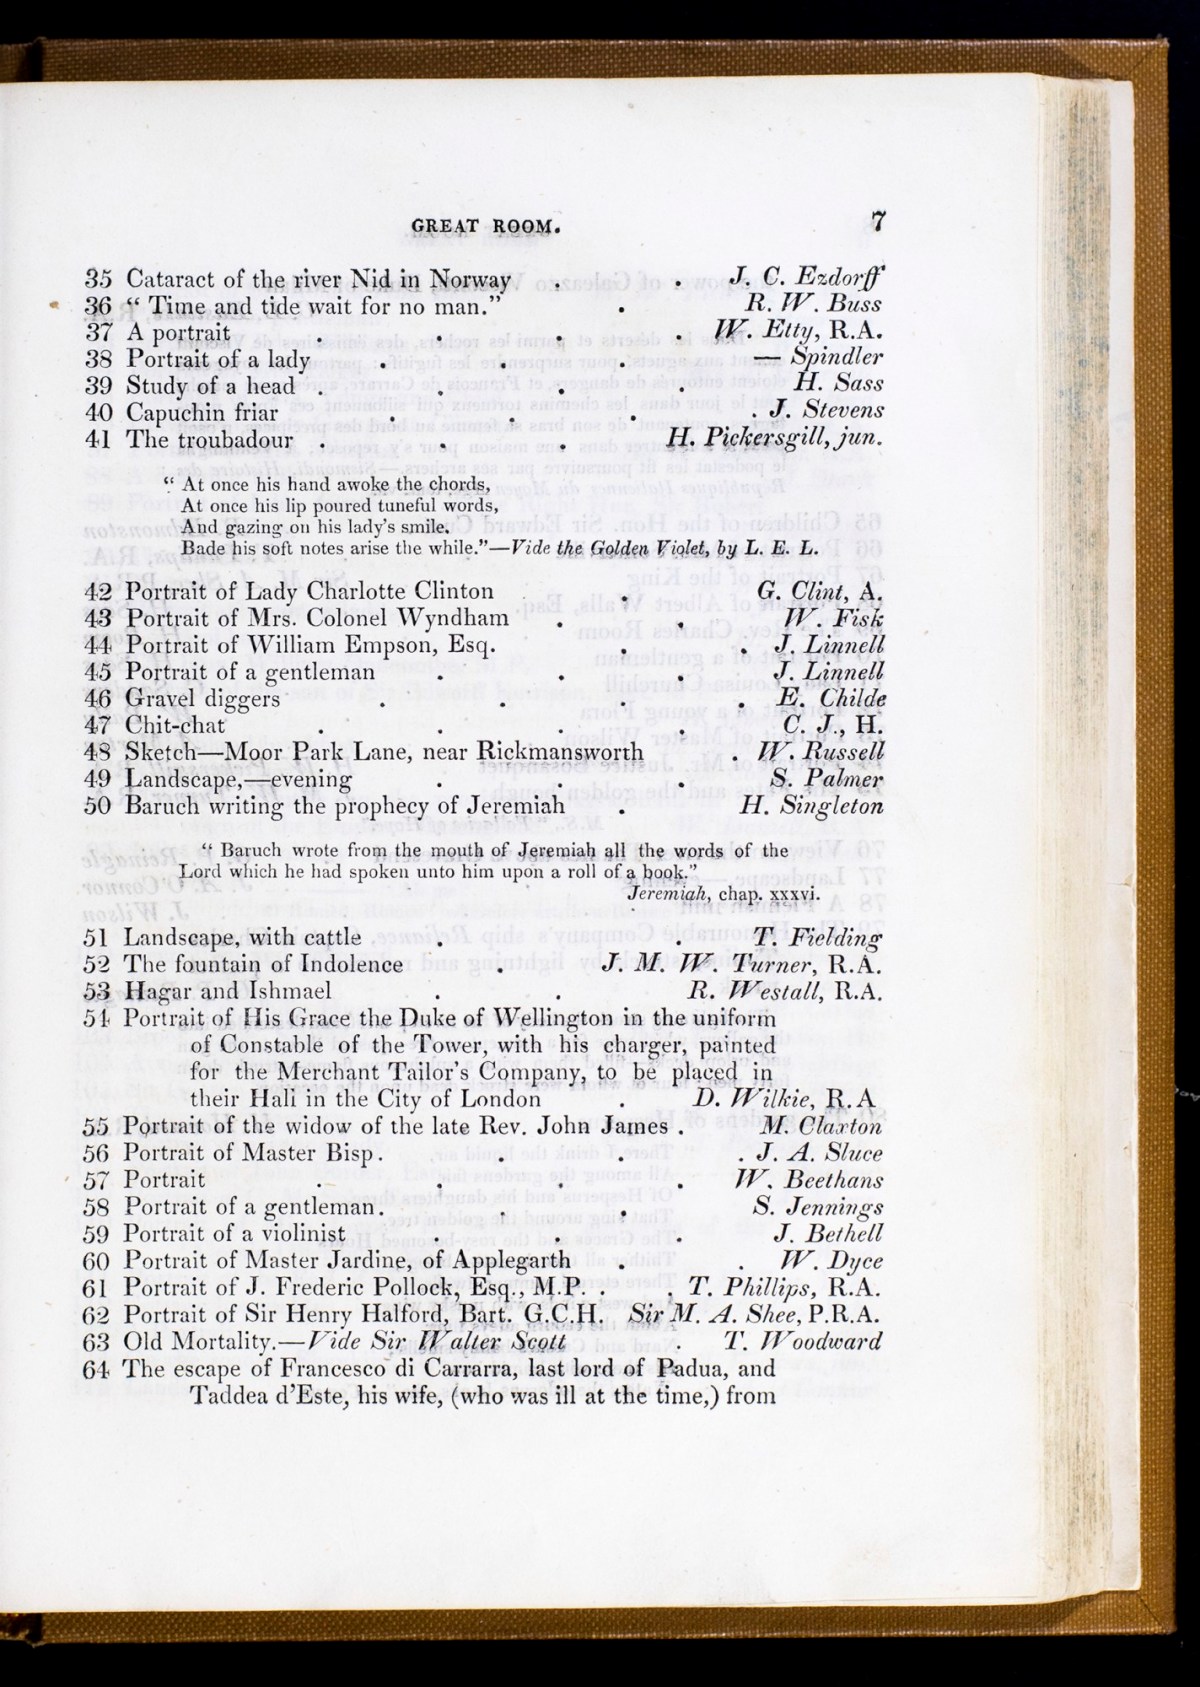 GREAT ROOM. 7
35 Cataract of the river Nid in Norway . . J. C. Ezdorff
36 “ Time and tide wait for no man.” . R. W. Buss
37 A portrait . . . . W. Etty, R.A.
38 Portrait of a lady . . . — Spindler
39 Study of a head . . . . H. Sass
40 Capuchin friar . . . . J. Stevens
41 The troubadour . . . H. Pickersgill, jun.
“ At once his hand awoke the chords,
At once his lip poured tuneful words,
And gazing on his lady’s smile.
Bade his soft notes arise the while.”—Vide the Golden Violet, by L. E. L.
42 Portrait of Lady Charlotte Clinton . G. Clint, A.
43 Portrait of Mrs. Colonel Wyndham . . W. Fisk
44 Portrait of William Empson, Esq. . . J. Linnell
45 Portrait of a gentleman . . . J. Linnell
46 Gravel diggers . . . . E. Childe
47 Chit-chat . . . . C. J., H.
48 Sketch—Moor Park Lane, near Rickmansworth . W. Russell
49 Landscape,—evening . . . S. Palmer
50 Baruch writing the prophecy of Jeremiah . H. Singleton
“ Baruch wrote from the mouth of Jeremiah all the words of the
Lord which he had spoken unto him upon a roll of a book.”
Jeremiah, chap. xxxvi.
51 Landscape, with cattle . . . T. Fielding
52 The fountain of Indolence . J. M. W. Turner, R.A.
53 Hagar and Ishmael . . R. Westall, R.A.
54 Portrait of His Grace the Duke of Wellington in the uniform
of Constable of the Tower, with his charger, painted
for the Merchant Tailor’s Company, to be placed in
their Hall in the City of London . D. Wilkie, R.A
55 Portrait of the widow of the late Rev. John James . M. Claxton
56 Portrait of Master Bisp . . . . J. A. Sluce
57 Portrait . . . . W. Beethans
58 Portrait of a gentleman . . . S. Jennings
59 Portrait of a violinist . . . J. Bethell
60 Portrait of Master Jardine, of Applegarth . . W. Dyce
61 Portrait of J. Frederic Pollock, Esq., M.P. . . T. Phillips, R.A.
62 Portrait of Sir Henry Halford, Bart. G.C.H. Sir M. A. Shee, P.R.A.
63 Old Mortality.—Vide Sir Walter Scott . T. Woodward
64 The escape of Francesco di Carrarra, last lord of Padua, and
Taddea d’Este, his wife, (who was ill at the time,) from